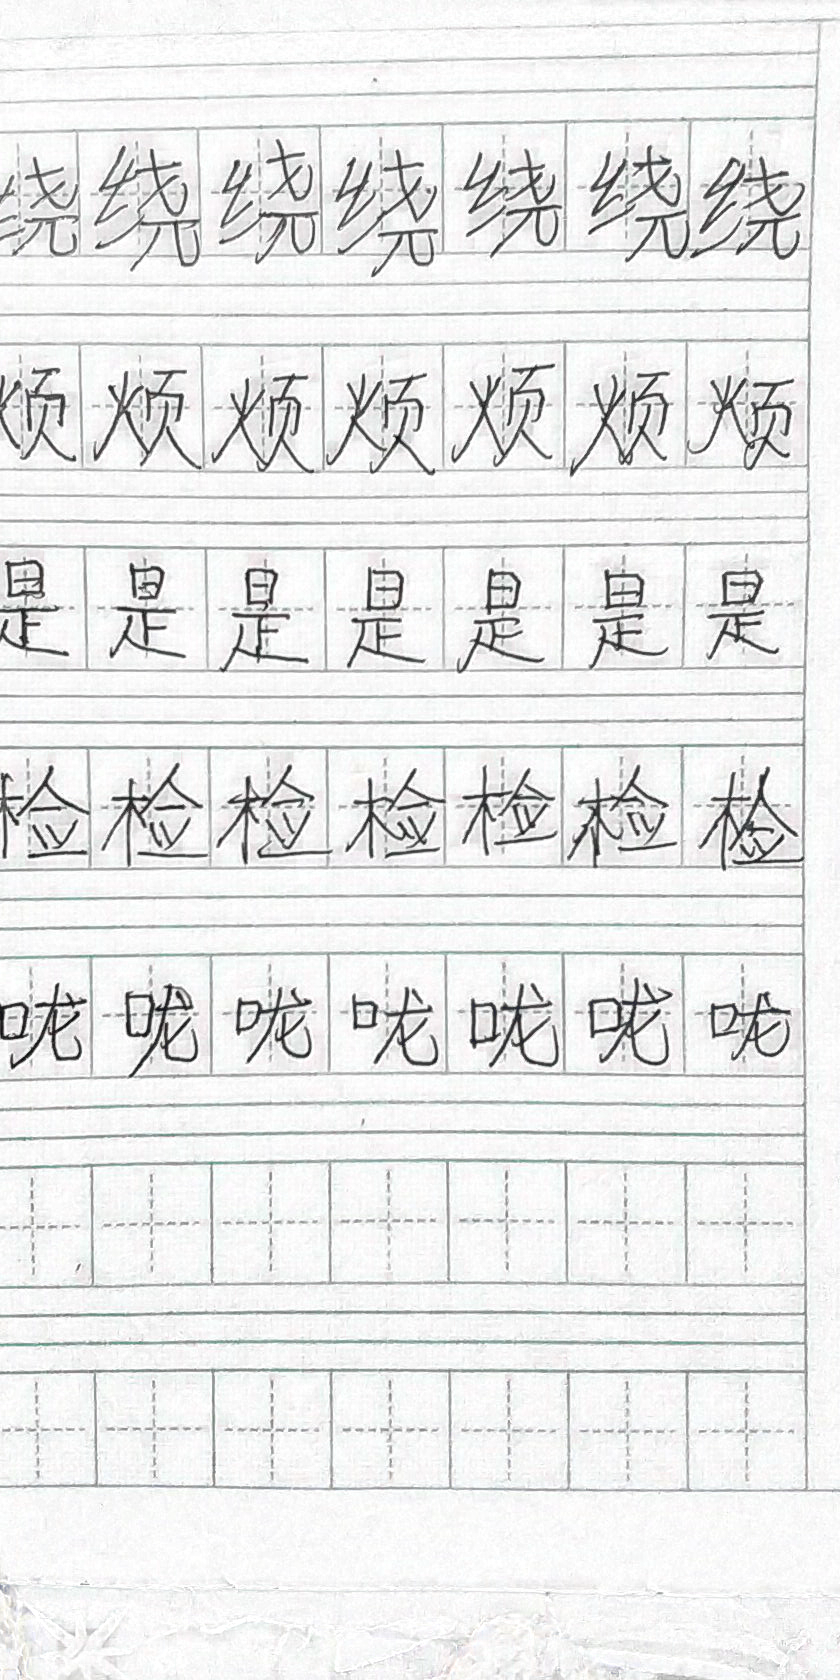 绕绕绕绕绕绕绕
烦烦烦烦烦烦烦
是是是是是是是
检检检检检检检
咙咙咙咙咙咙咙